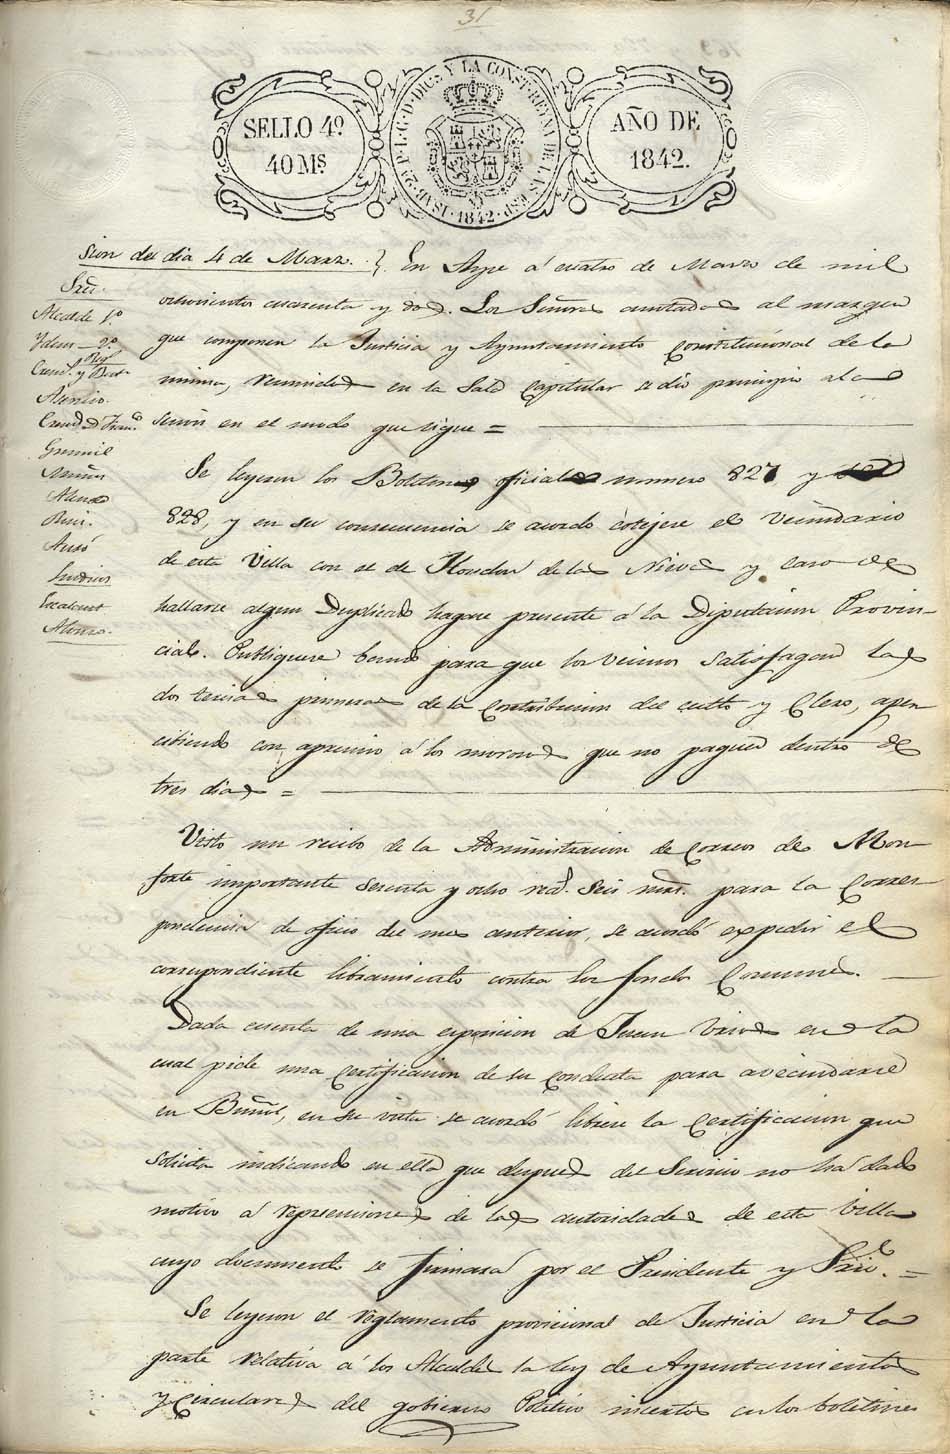 31
SELLO 4º.
40 Ms.
ISAB. 2ª P. L. G. D. DIOS Y LA CONST. REYNA DE LAS ESP. 1842.
AÑO DE
1842.
sion del dia 4 de Marzo.
Sres.
Alcalde 1º
Idem 2º
Asencio.
Alonso.
En Aspe á cuatro de Marzo de mil
ochocientos cuarenta y dos. Los Señores anotados al margen
que componen la Justicia y Ayuntamiento Constitucional de la
misma, reunidos en la Sala Capitular se dio principio a la
sesion en el modo que sigue =
Se leyeron los Boletines oficiales numero 827 y
828, y en su consecuencia se acordó cotejese el Vecindario
de esta Villa con el de Hondon de las Nieves y caso de
hallarse algun Duplicado hagase presente á la Diputacion Provin-
cial. Publiquese bando para que los vecinos satisfagan las
dos tercias primeras de la Contribucion del culto y Clero, aper-
cibiendo con apremio á los morosos que no paguen dentro de
tres dias =
Visto un recibo de la Administracion de Correos de Mon-
forte importante sesenta y ocho reas. seis mrs. para la Corres-
pondencia de oficio del mes anterior, se acordó expedir el
correspondiente libramiento contra los fondos Comunes.
Dada cuenta de una exposicion de Juan Vives en la
cual pide una Certificacion de su Conducta para avecindarse
en, en su vista se acordó librese la Certificacion que
solicita indicando en ella que despues del Servicio no ha dado
motivo á reprensiones de las autoridades de esta Villa
cuyo documento se firmará por el Presidente y Srio. =
Se leyeron el reglamento provicional de Justicia en la
parte relativa á los Alcaldes la ley de Ayuntamientos
y Circulares del gobierno Politico insertas en los boletines